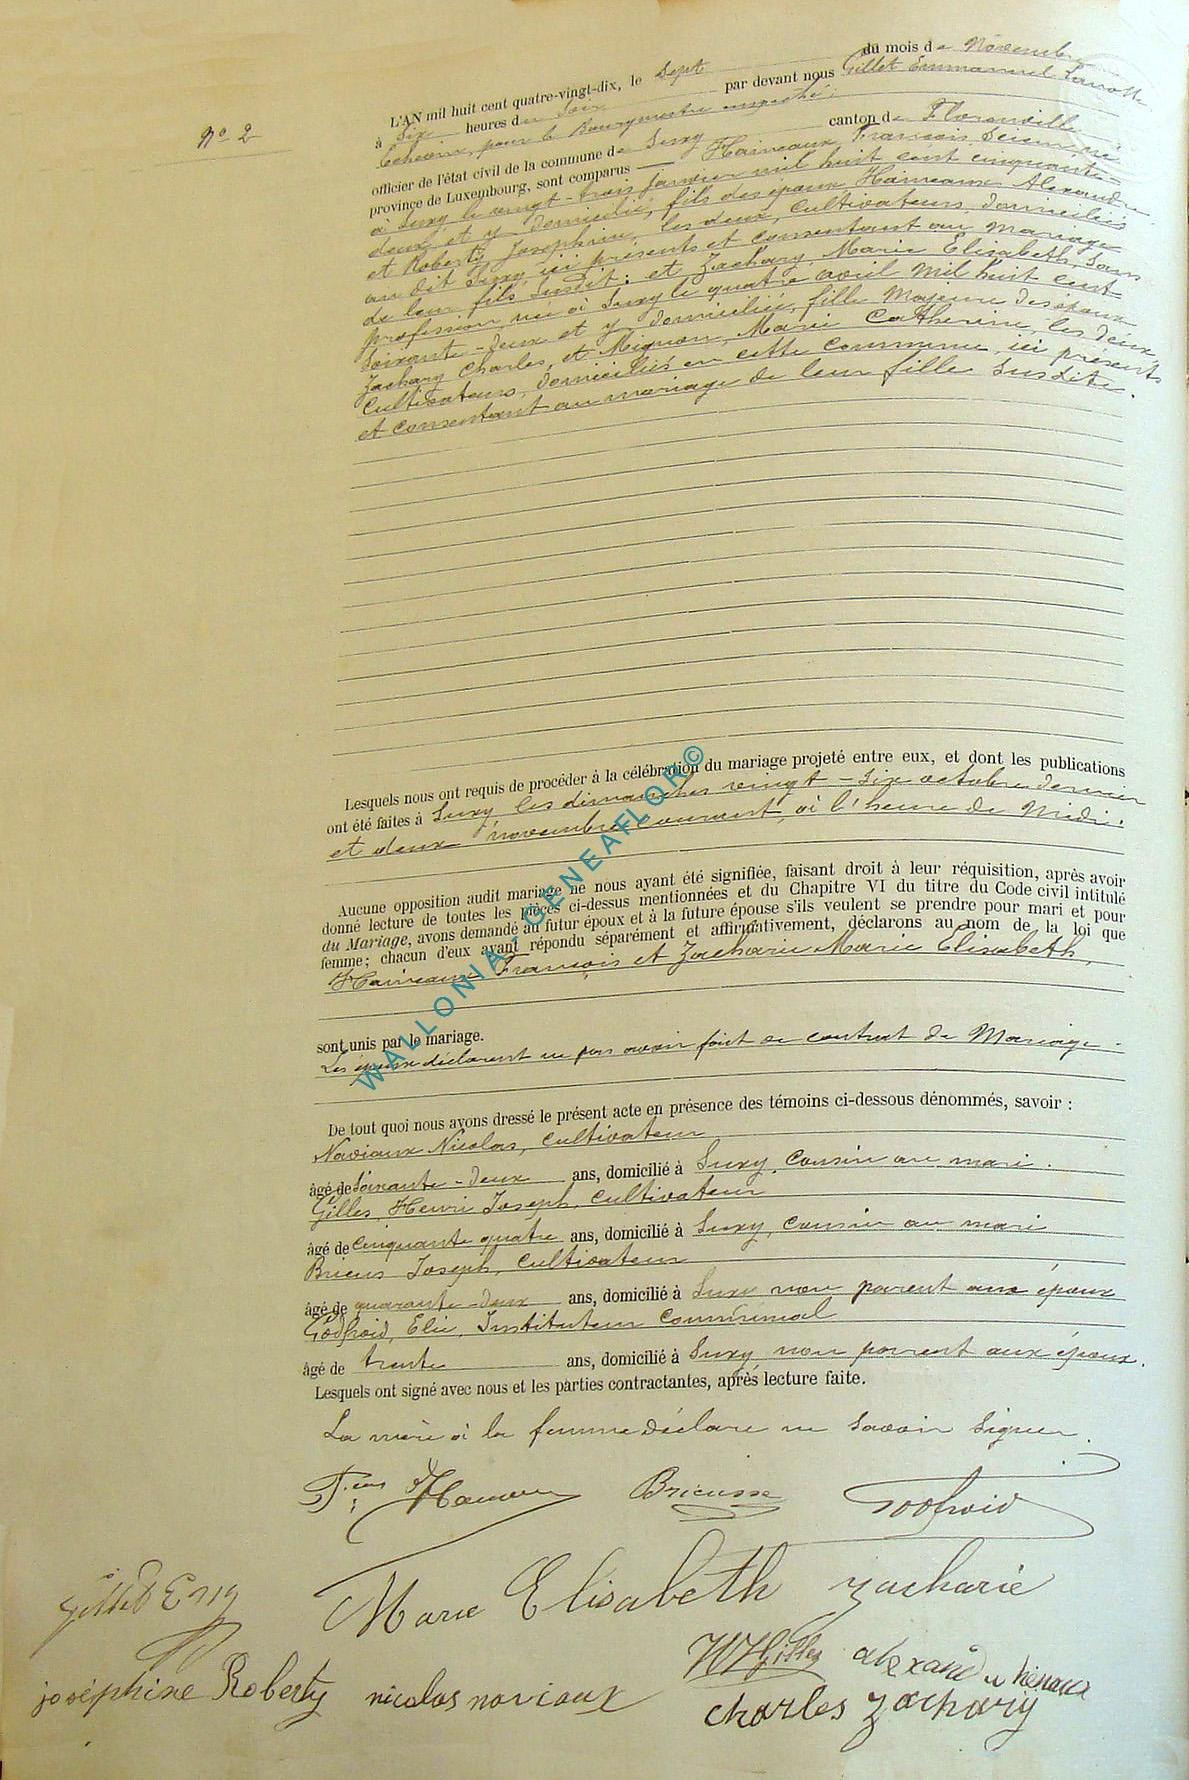 N° 2
L'AN mil huit cent quatre-vingt-dix, le Sept du mois de Novembre
à Six heures du Soir par devant nous Gillet Emmanuel
Echevin, pour le Bourgmestre empêché,
officier de l'état civil de la commune de Suxy canton de Florenville
province de Luxembourg, sont comparus — Haineaux François né
à Suxy le vingt-trois janvier mil huit cent cinquante-
deux et y domicilié, fils des époux Haineaux Alexandre
et Roberty Josephine, les deux, cultivateurs domiciliés
au dit Suxy, ici présents et consentant au mariage
de leur fils Susdit; et Zachary Marie Elisabeth, Sans
profession, née à Suxy le quatre avril mil huit cent
Soixante-Deux et y domiciliée, fille Majeure des époux
Zachary Charles, et Mignon, Marie Catherine, les deux
Cultivateurs, Domiciliés en cette commune, ici présents
et consentant au mariage de leur fille Susdite.
Lesquels nous ont requis de procéder à la célébration du mariage projeté entre eux, et dont les publications
ont été faites à Suxy les dimanches vingt-six octobre dernier
et deux novembre courant, à l'heure de Midi.
Aucune opposition audit mariage ne nous ayant été signifiée, faisant droit à leur réquisition, après avoir
donné lecture de toutes les pièces ci-dessus mentionnées et du Chapitre VI du titre du Code civil intitulé
du Mariage, avons demandé au futur époux et à la future épouse s'ils veulent se prendre pour mari et pour
femme; chacun d'eux ayant répondu séparément et affirmativement, déclarons au nom de la loi que
Haineaux François et Zacharie Marie Elisabeth,
sont unis par le mariage.
Les époux déclarent ne pas avoir fait de contrat de Mariage.
De tout quoi nous avons dressé le présent acte en présence des témoins ci-dessous dénommés, savoir :
Naviaux Nicolas, Cultivateur
âgé de Soixante-Deux ans, domicilié à Suxy, Cousin au mari.
Gilles, Henri Joseph, Cultivateur
âgé de Cinquante quatre ans, domicilié à Suxy, Cousin au mari
Brieus Joseph, Cultivateur
âgé de quarante-Deux ans, domicilié à Suxy non parent aux époux
Godfroid, Elie, Instituteur Communal
âgé de trente ans, domicilié à Suxy, non parent aux époux.
Lesquels ont signé avec nous et les parties contractantes, après lecture faite.
La mère à la femme déclare ne Savoir Signer.
Brieusse Godfroid
Marie Elisabeth Zacharie
Gillet
HJ Gilles
joséphine Roberty nicolas noviaux
charles zachary
WALLONIA-GENEAFLOR©